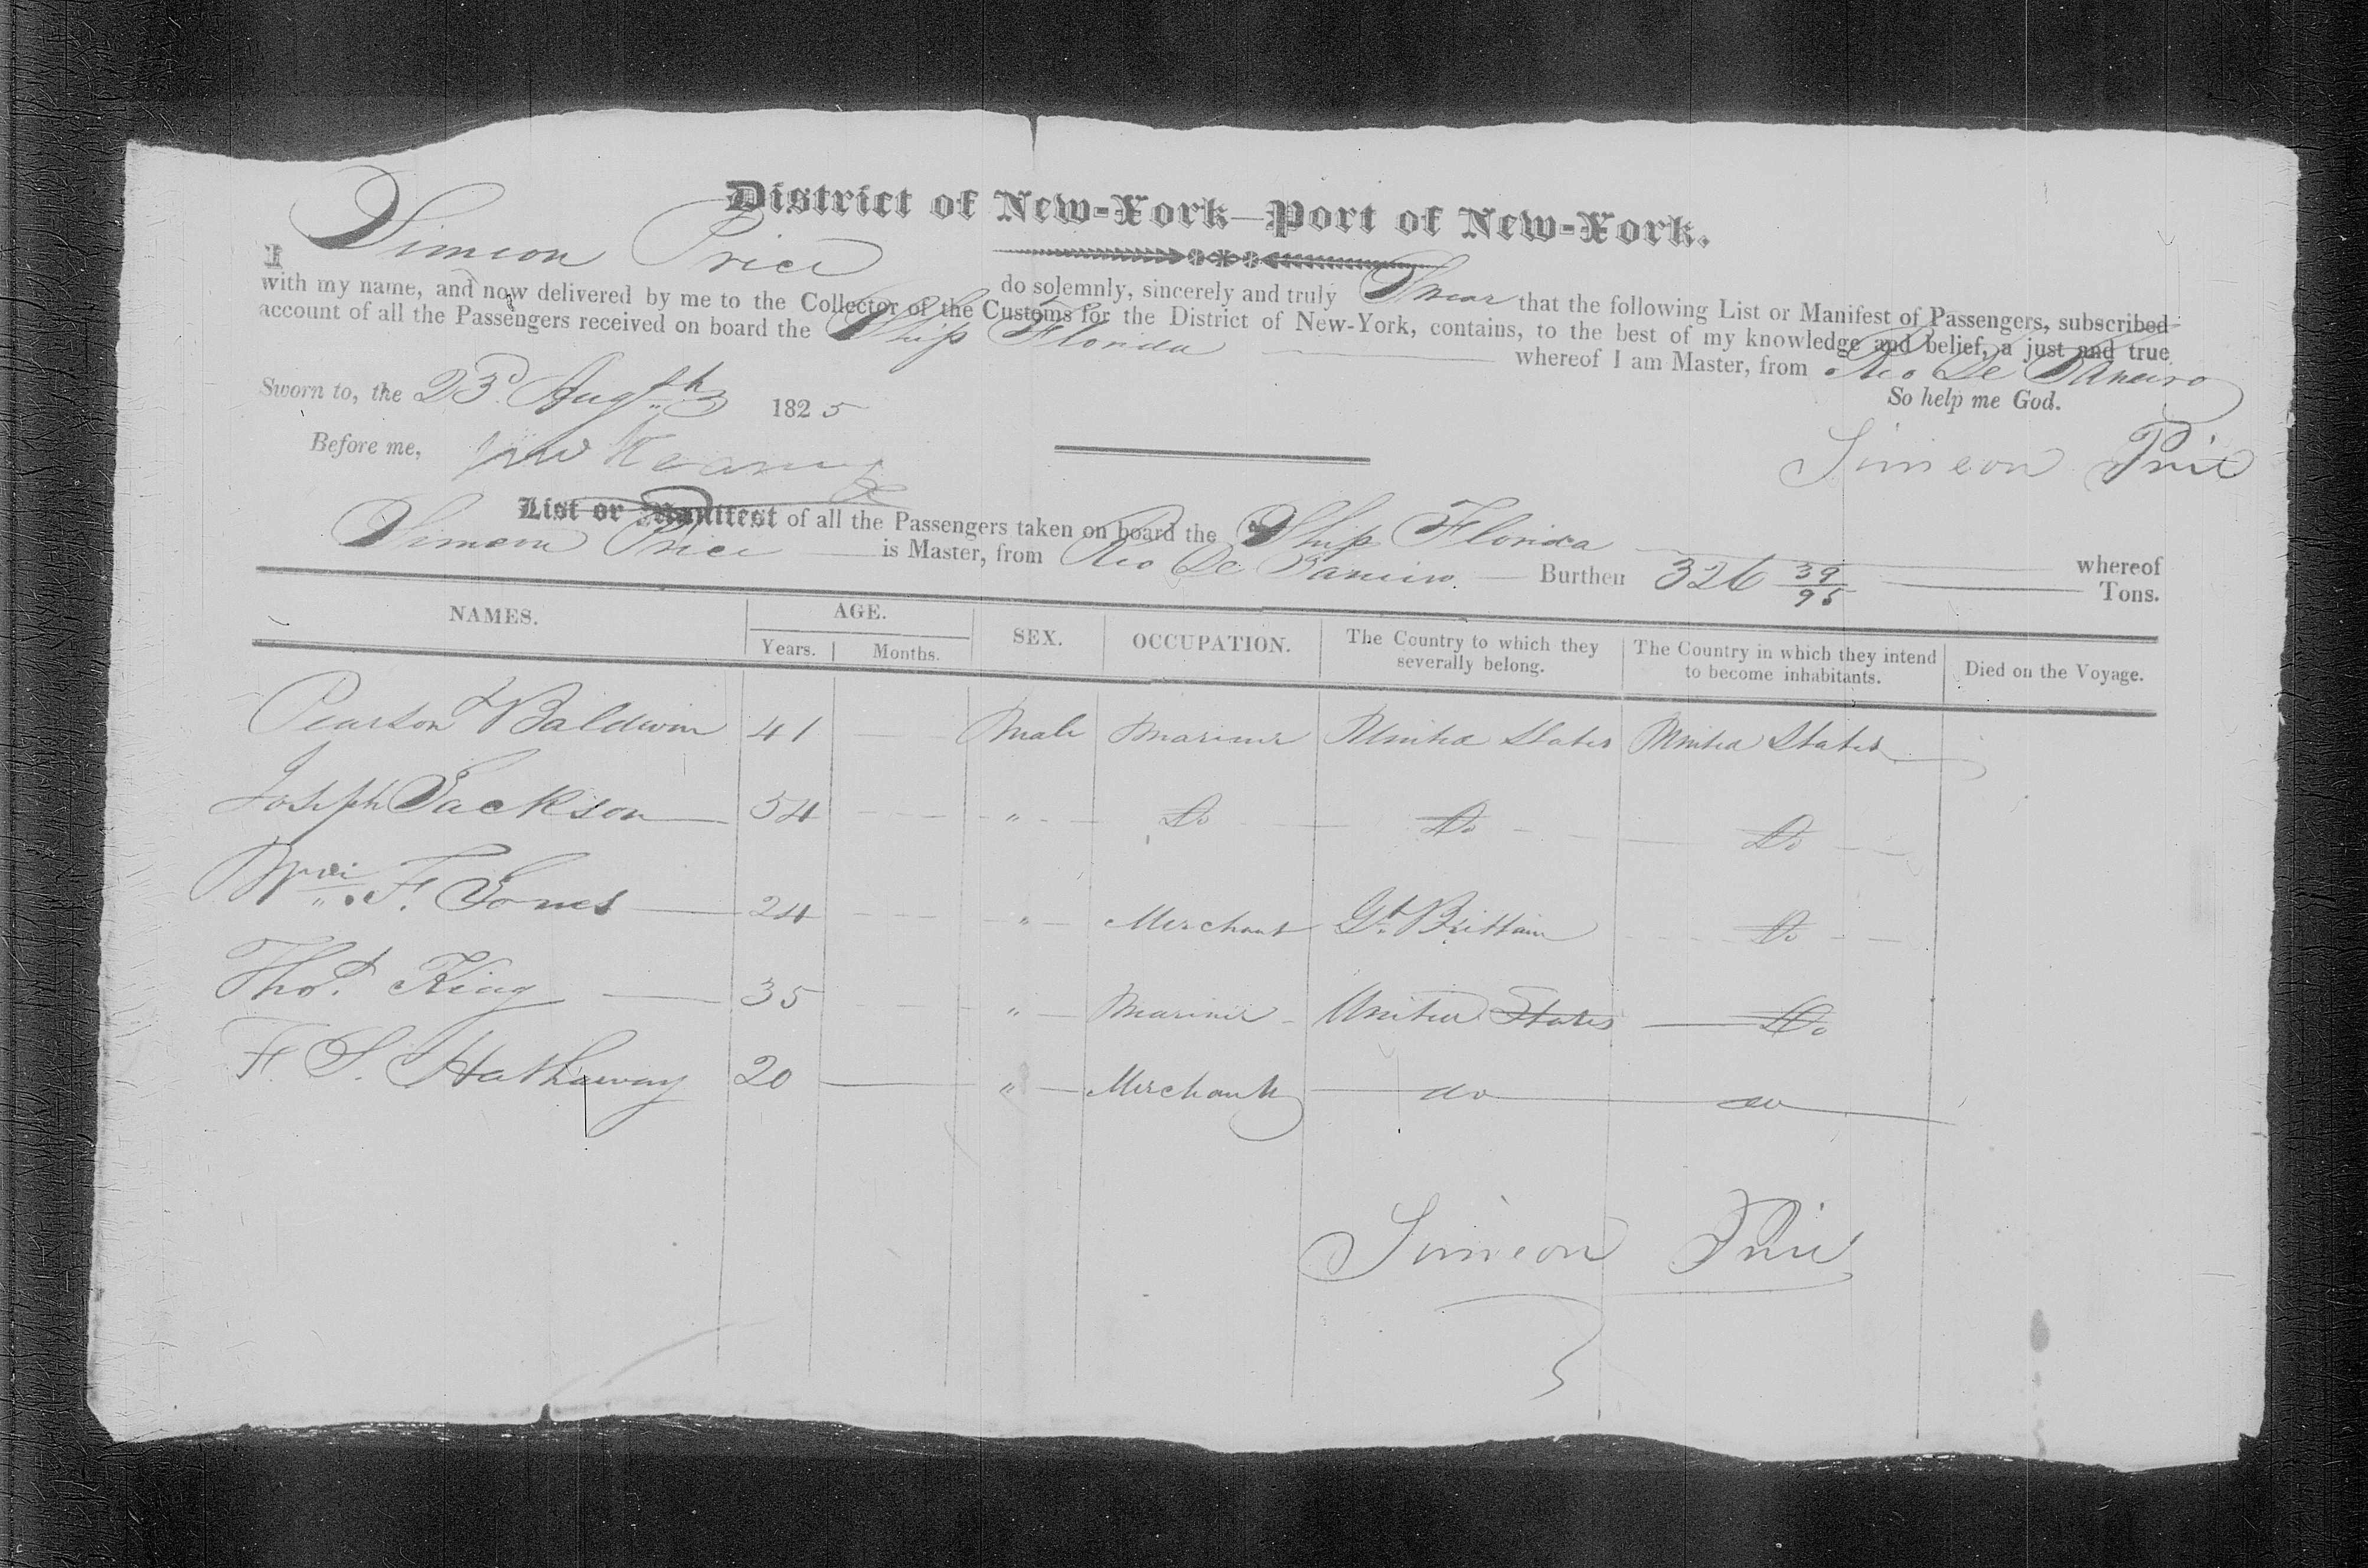 District of New-York—Port of New-York.
I Simeon Price do solemnly, sincerely and truly Swear that the following List or Manifest of Passengers, subscribed
with my name, and now delivered by me to the Collector of the Customs for the District of New-York, contains, to the best of my knowledge and belief, a just and true
account of all the Passengers received on board the Ship Florida whereof I am Master, from Rio De Janeiro
Sworn to, the 23d Augt 1825 So help me God.
Before me, Simeon Price
List or Manifest of all the Passengers taken on board the Ship Florida whereof
Simeon Price is Master, from Rio De Janeiro. Burthen 326 39/95 Tons.
NAMES. AGE. SEX. OCCUPATION. The Country to which they severally belong. The Country in which they intend to become inhabitants. Died on the Voyage.
Years. Months.
Pearson Baldwin 41 Male Mariner United States United States
Joseph Jackson 54 " Do Do Do
Wm F. Jones 24 " Merchant Gt. Brittain Do
Thos. King 35 " Mariner United States Do
F. S. Hathaway 20 " Merchant do do
Simeon Price